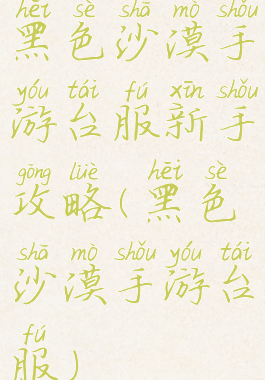 hēi sè shā mò shǒu
黑色沙漠手
yóu tái fú xīn shǒu
游台服新手
gōng lüè hēi sè
攻略(黑色
shā mò shǒu yóu tái
沙漠手游台
fú
服)